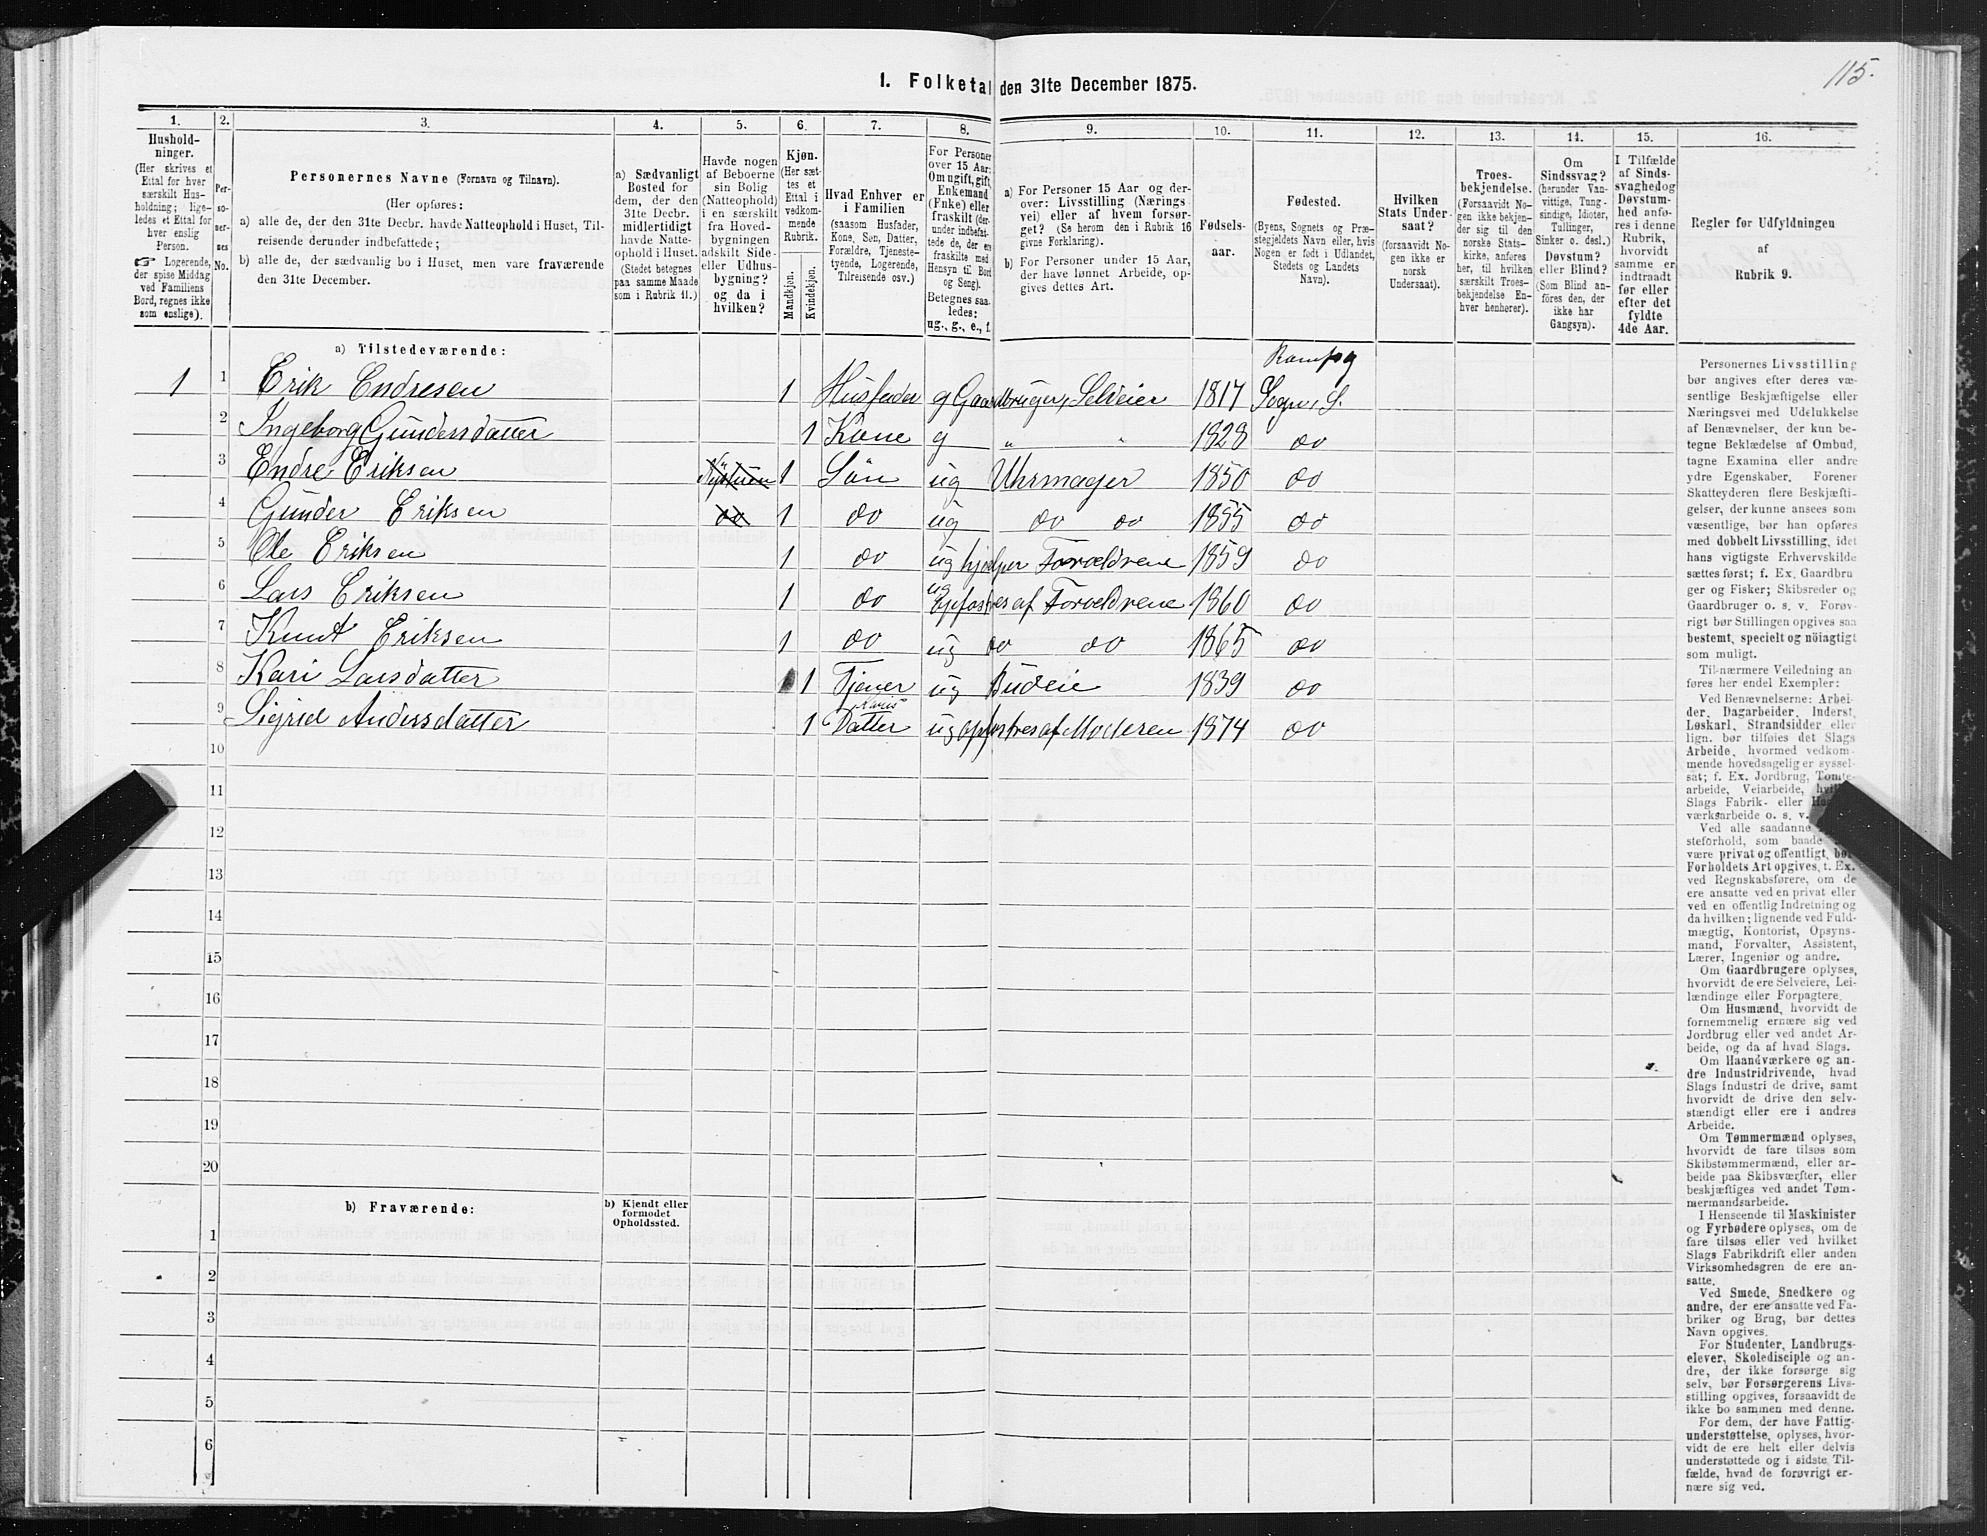 115.
1. Folketal den 31te December 1875.
1. 2. 3. 4. 5. 6. 7. 8. 9. 10. 11. 12. 13. 14. 15. 16.
Hushold-
ninger.
(Her skrives et
Ettal for hver
særskilt Hus-
holdning; lige-
ledes et Ettal for
hver enslig
Person.
☞ Logerende,
der spise Middag
ved Familiens
Bord, regnes ikke
som enslige).
Per-
so-
ner-
nes
No.
Personernes Navne (Fornavn og Tilnavn).
(Her opføres:
a) alle de, der den 31te Decbr. havde Natteophold i Huset, Til-
reisende derunder indbefattede;
b) alle de, der sædvanlig bo i Huset, men vare fraværende
den 31te December.
a) Sædvanligt
Bosted for
dem, der den
31te Decbr.
midlertidigt
havde Natte-
ophold i Huset.
(Stedet betegnes
paa samme Maade
som i Rubrik 11.)
Havde nogen
af Beboerne
sin Bolig
(Natteophold)
i en særskilt
fra Hoved-
bygningen
adskilt Side-
eller Udhus-
bygning?
og da i
hvilken?
Kjøn.
(Her sæt-
tes et
Ettal i
vedkom-
mende
Rubrik.
Mandkjøn.
Kvindekjøn.
Hvad Enhver er
i Familien
(saasom Husfader,
Kone, Søn, Datter,
Forældre, Tjeneste-
tyende, Logerende,
Tilreisende osv.)
For Personer
over 15 Aar:
Om ugift, gift,
Enkemand
(Enke) eller
fraskilt (der-
under indbefat-
tede de, der ere
fraskilte med
Hensyn til Bord
og Seng).
Betegnes saa-
ledes:
ug., g., e., f.
a) For Personer 15 Aar og der-
over: Livsstilling (Nærings-
vei) eller af hvem forsør-
get? (Se herom den i Rubrik 16
givne Forklaring).
b) For Personer under 15 Aar,
der have lønnet Arbeide, op-
gives dettes Art.
Fødsels-
aar.
Fødested.
(Byens, Sognets og Præ-
stegjeldets Navn eller, hvis
Nogen er født i Udlandet,
Stedets og Landets
Navn).
Hvilken
Stats Under-
saat?
(forsaavidt No-
gen ikke er
norsk
Undersaat).
Troes-
bekjendelse.
(Forsaavidt No-
gen ikke bekjen-
der sig til den
norske Stats-
kirke, anføres
her, til hvilken
særskilt Troes-
bekjendelse En-
hver henhører).
Om
Sindssvag?
(herunder Van-
vittige, Tung-
sindige, Idioter,
Tullinger,
Sinker o. desl.)
Døvstum?
eller Blind?
(Som Blind an-
føres den, der
ikke har
Gangsyn).
I Tilfælde
af Sinds-
svaghed og
Døvstum-
hed anfø-
res i denne
Rubrik,
hvorvidt
samme er
indtraadt
før eller
efter det
fyldte
4de Aar.
Regler før Udfyldningen
af
Rubrik 9.
a) Tilstedeværende:
1 1 Erik Endresen 1 Husfader g Gaardbruger, Selveier 1817 Sogn, S.
2 Ingeborg Gundersdatter 1 Kone g " " 1828 do
3 Endre Eriksen 1 Sön ug Uhrmager 1850 do
4 Gunder Eriksen do 1 do ug do do 1855 do
5 Ole Eriksen 1 do ug hjelper Forældrene 1859 do
6 Lars Eriksen 1 do ug Opfostres af Forældrene 1860 do
7 Knut Eriksen 1 do ug do do 1865 do
8 Kari Larsdatter 1 Tjener ug Budeie 1839 do
9 Sigrid Andersdatter 1 Karis Datter ug opfostres af Moderen 1874 do
10
11
12
13
14
15
16
17
18
19
20
b) Fraværende:
b) Kjendt eller
formodet
Opholdssted.
1
2
3
4
5
6
Personernes Livsstilling
bør angives efter deres væ-
sentlige Beskjæftigelse eller
Næringsvei med Udelukkelse
af Benævnelser, der kun be-
tegne Beklædelse af Ombud,
tagne Examina eller andre
ydre Egenskaber. Forener
Skatteyderen flere Beskjæfti-
gelser, der kunne ansees som
væsentlige, bør han opføres
med dobbelt Livsstilling, idet
hans vigtigste Erhvervskilde
sættes først; f. Ex. Gaardbru
ger og Fisker; Skibsreder og
Gaardbruger o. s. v. Forøv-
rigt bør Stillingen opgives saa
bestemt, specielt og nöiagtigt
som muligt.
Til nærmere Veiledning an
føres her endel Exempler:
Ved Benævnelserne: Arbei-
der, Dagarbeider, Inderst,
Løskarl, Strandsidder eller
lign. bør tilføies det Slags
Arbeide, hvormed vedkom-
mende hovedsagelig er syssel-
sat; f. Ex. Jordbrug, Tomte-
arbeide, Veiarbeide,
Slags Fabrik- eller
værksarbeide o. s. v.
Ved alle saadanne
steforhold, som baade
være privat og offentligt, bør
Forholdets Art opgives, t. Ex.
ved Regnskabsførere, om de
ere ansatte ved en privat eller
ved en offentlig Indretning og
da hvilken; lignende ved Fuld-
mægtig, Kontorist, Opsyns-
mand, Forvalter, Assistent,
Lærer, Ingeniør og andre.
Om Gaardbrugere oplyses,
hvorvidt de ere Selveiere, Lei-
lændinge eller Forpagtere.
Om Husmænd, hvorvidt de
fornemmelig ernære sig ved
Jordbrug eller ved andet Ar-
beide, og da af hvad Slags.
Om Haandværkere og an-
dre Industridrivende, hvad
Slags Industri de drive, samt
hvorvidt de drive den selv-
stændigt eller ere i andres
Arbeide.
Om Tømmermænd oplyses,
hvorvidt de fare tilsøs som
Skibstømmermænd, eller ar-
beide paa Skibsværfter, eller
beskjæftiges ved andet Tøm-
mermandsarbeide.
I Henseende til Maskinister
og Fyrbødere oplyses, om de
fare tilsøs eller ved hvilket
Slags Fabrikdrift eller anden
Virksomhedsgren de ere an-
satte.
Ved Smede, Snedkere og
andre, der ere ansatte ved Fa-
briker og Brug, bør dettes
Navn opgives.
For Studenter, Landbrugs-
elever, Skoledisciple og an-
dre, der ikke forsørge sig
selv, bør Forsørgerens Livs-
stilling opgives, forsaavidt de
ikke bo sammen med denne.
For dem, der have Fattig-
understøttelse, oplyses, hvor-
vidt de ere helt eller delvis
understøttede og i sidste Til-
fælde, hvad de forøvrigt er-
nære sig ved.